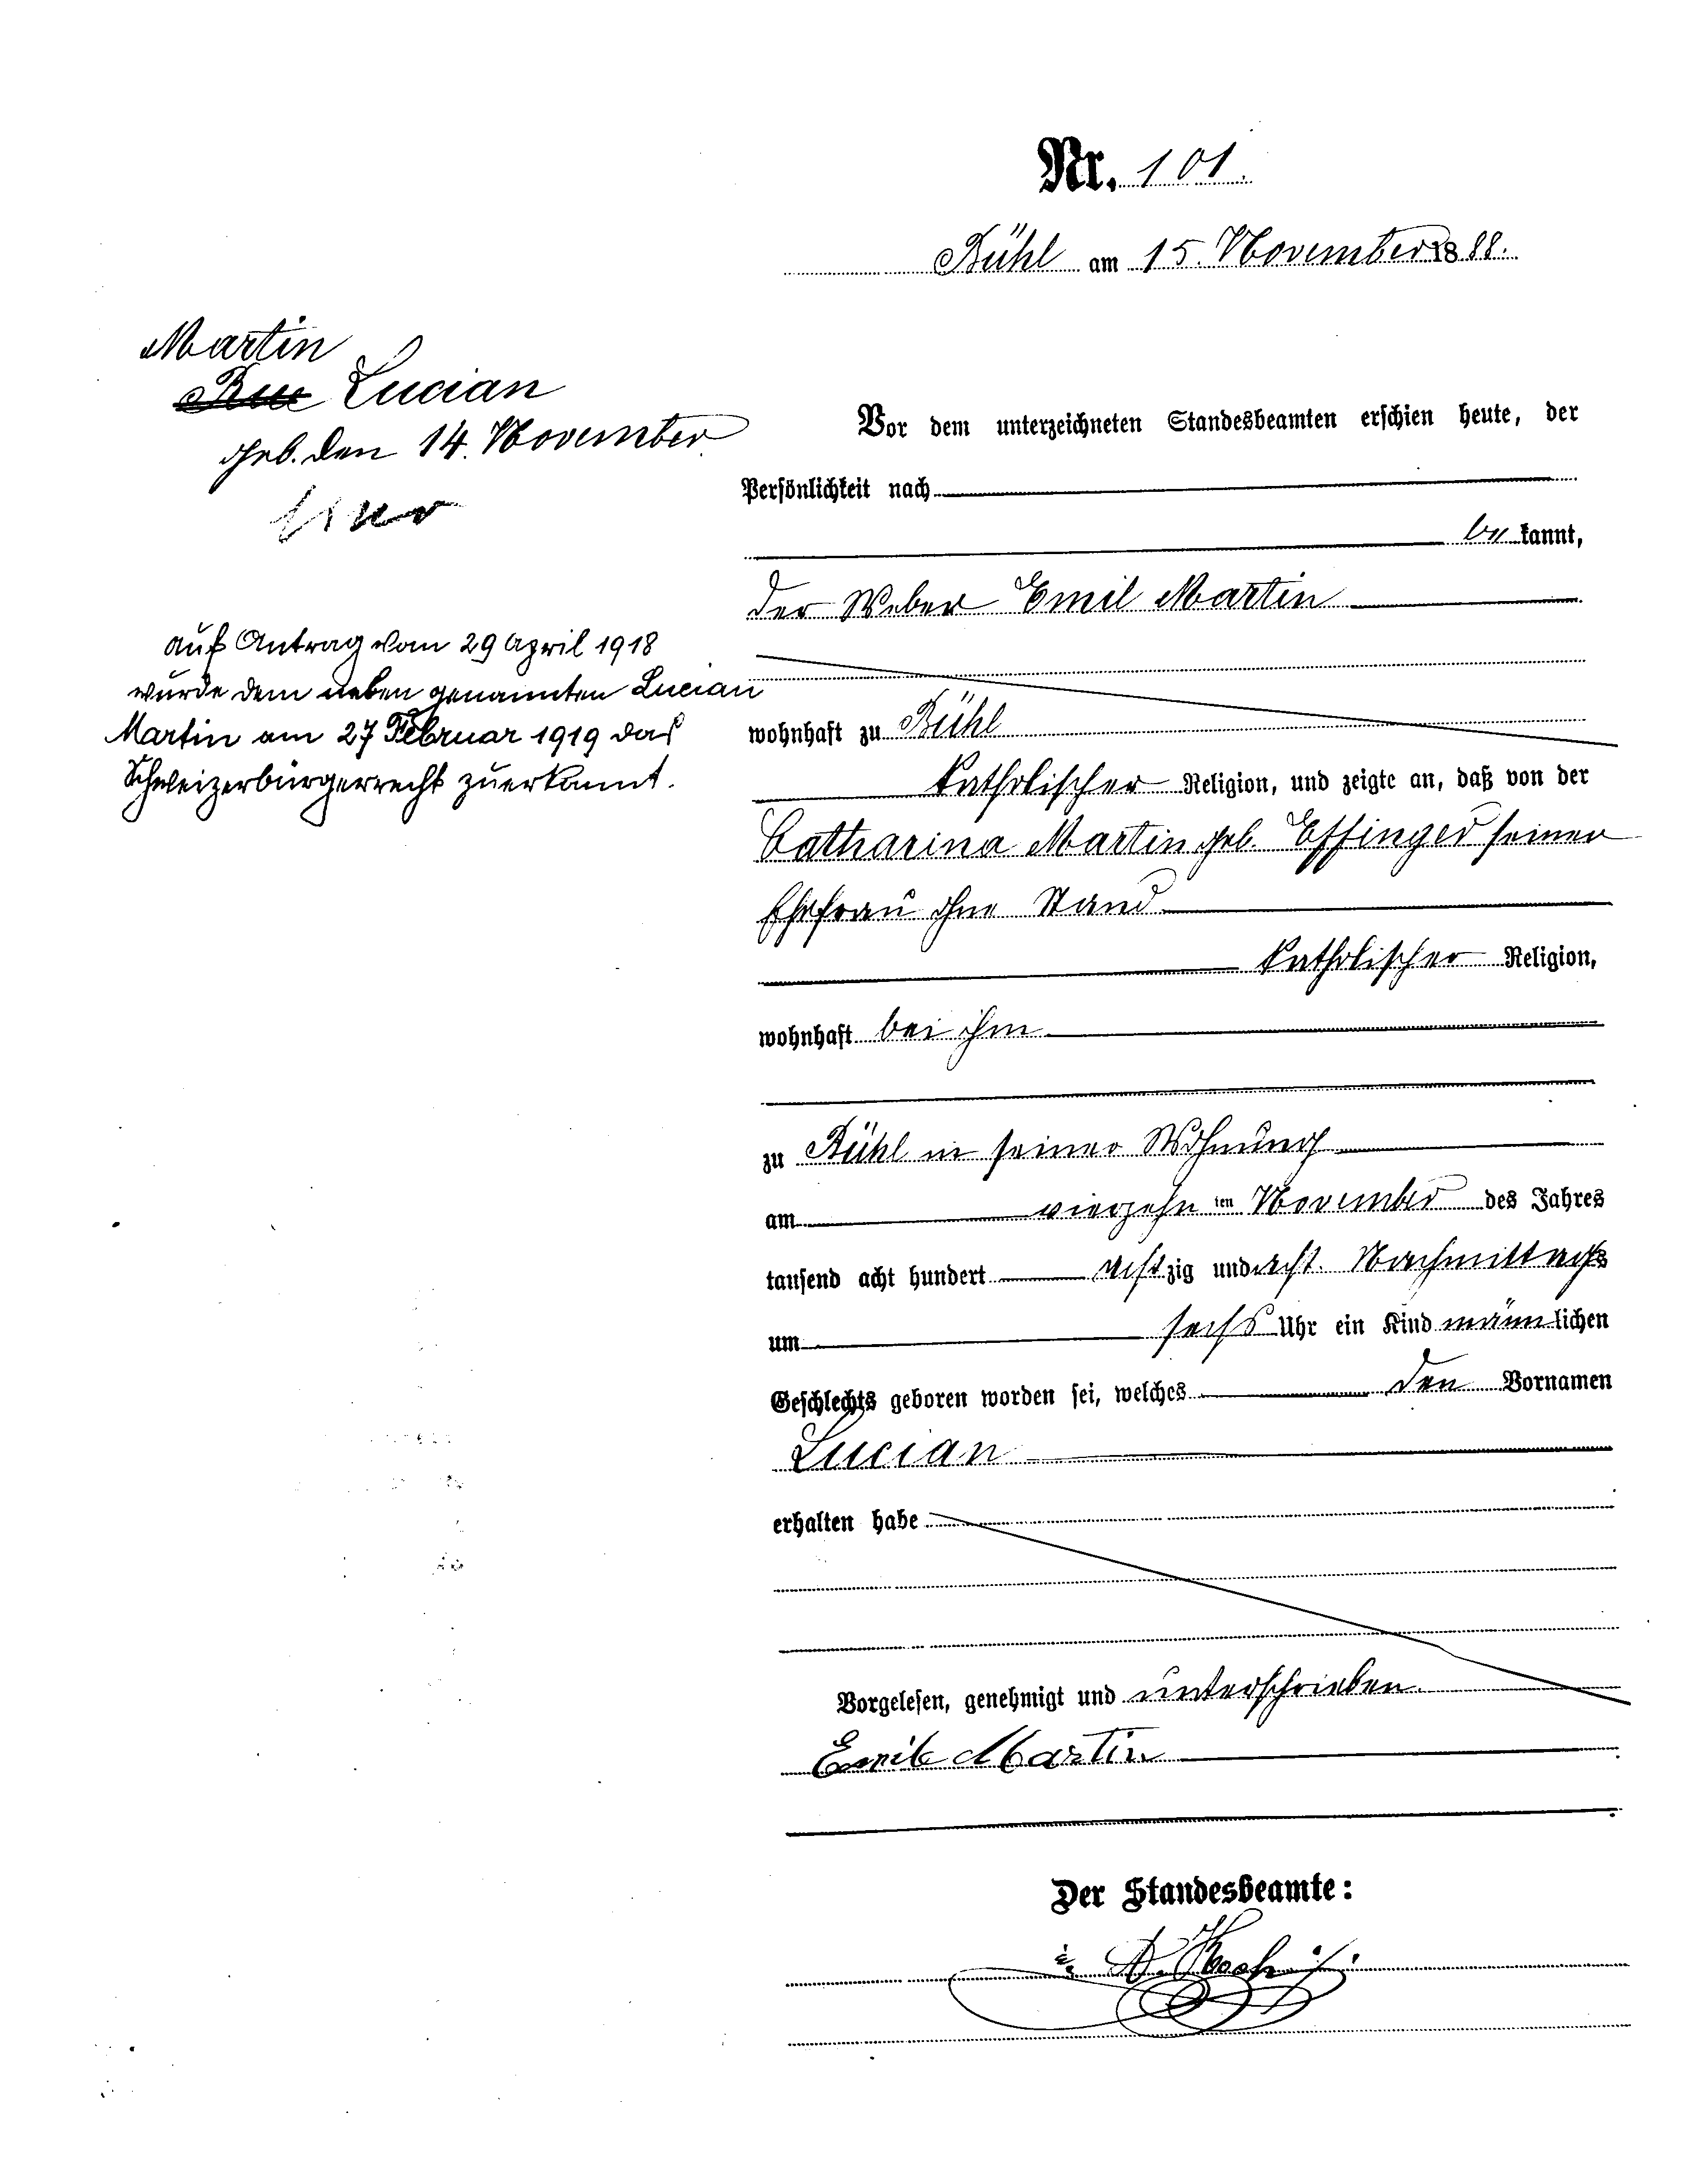 Nr. 101.
Bühl am 15. November 1888.
Martin
Rue Lucian
geb. den 14. November
Vor dem unterzeichneten Standesbeamten erschien heute, der
Persönlichkeit nach
bekannt,
der Weber Emil Martin
auf Antrag vom 29 April 1918
wurde dem nebengenannten Lucian
Martin am 27 Februar 1919 das
Schweizerbürgerrecht zuerkannt.
wohnhaft zu Bühl
katholischer Religion, und zeigte an, daß von der
Catharina Martin geb. Effinger seiner
Ehefrau ohne Stand
katholischer Religion,
wohnhaft bei ihm
zu Bühl in seiner Wohnung
am vierzehn ten November des Jahres
tausend acht hundert achtzig und acht Nachmittags
um sechs Uhr ein Kind männlichen
Geschlechts geboren worden sei, welches den Vornamen
Lucian
erhalten habe
Vorgelesen, genehmigt und unterschrieben.
Emil Martin
Der Standesbeamte:
A. Koch